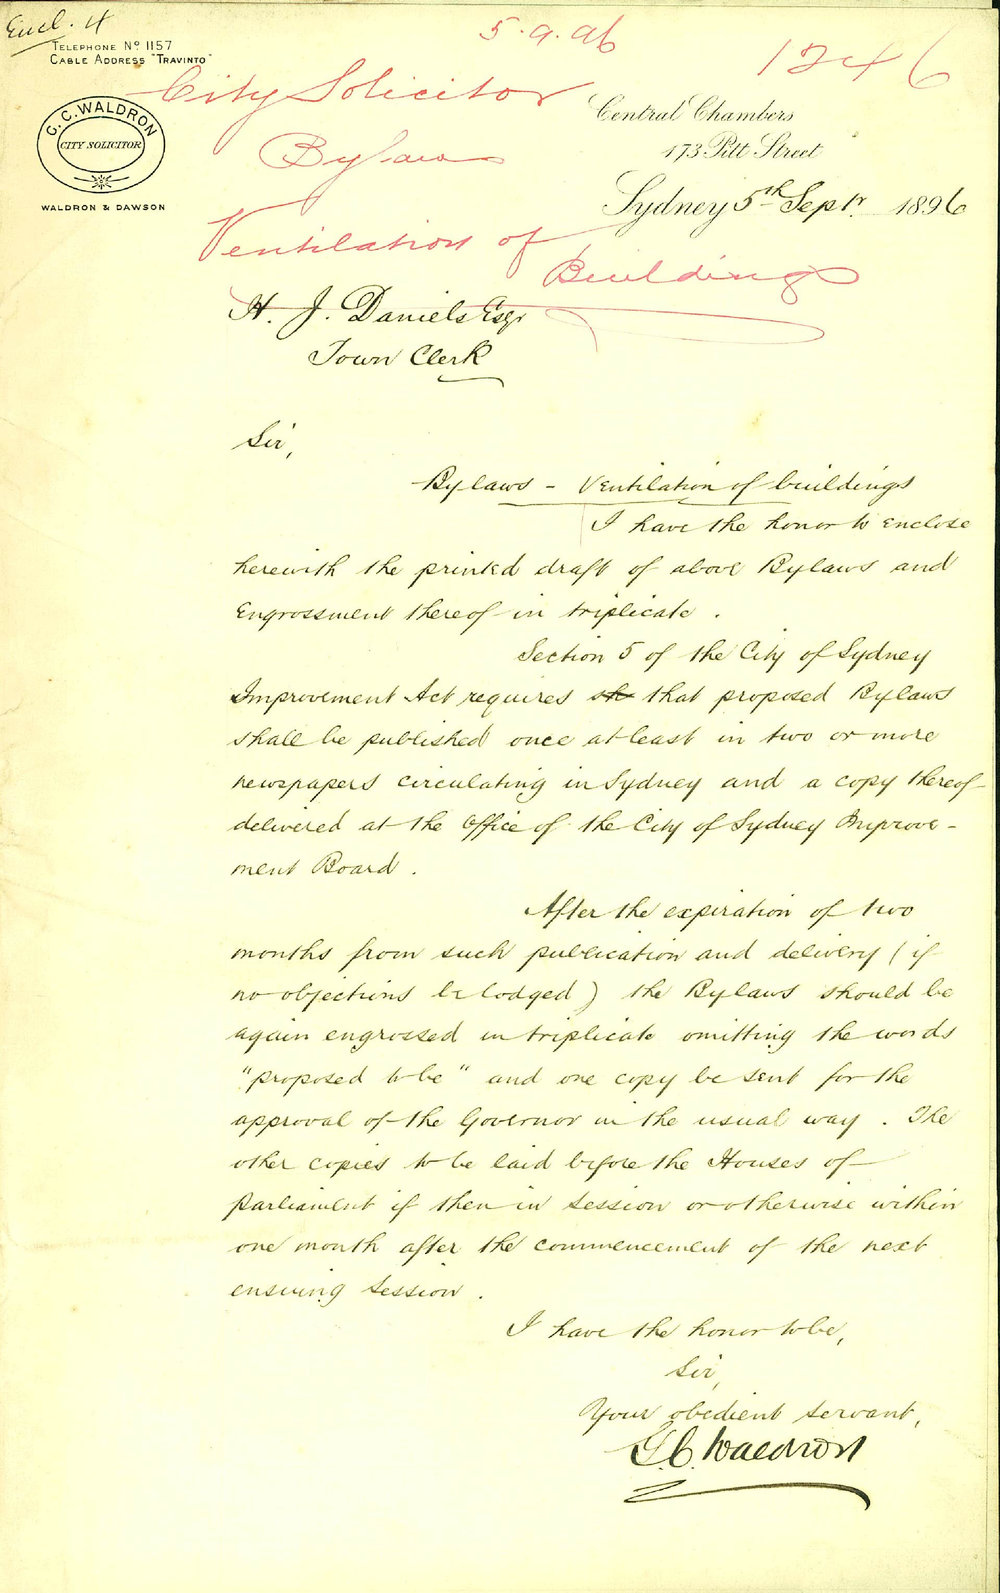 Encl. 4
5.9.96
1246
TELEPHONE No 1157
CABLE ADDRESS "TRAVINTO"
City Solicitor
G. C. WALDRON
CITY SOLICITOR
WALDRON & DAWSON
Central Chambers
173 Pitt Street
Bylaws
Sydney 5th Septr. 1896
Ventilation of
Buildings
H. J. Daniels Esqr
Town Clerk
Sir,
Bylaws - Ventilation of buildings
I have the honor to enclose
herewith the printed draft of above Bylaws and
Engrossment thereof in triplicate.
Section 5 of the City of Sydney
Improvement Act requires sh that proposed Bylaws
shall be published once at least in two or more
newspapers circulating in Sydney and a copy thereof
delivered at the Office of the City of Sydney Improve-
ment Board.
After the expiration of two
months from such publication and delivery (if
no objections be lodged) the Bylaws should be
again engrossed in triplicate omitting the words
"proposed to be" and one copy be sent for the
approval of the Governor in the usual way. The
other copies to be laid before the Houses of
Parliament if then in session or otherwise within
one month after the commencement of the next
ensuing session.
I have the honor to be,
Sir,
Your obedient servant,
G. C. Waldron